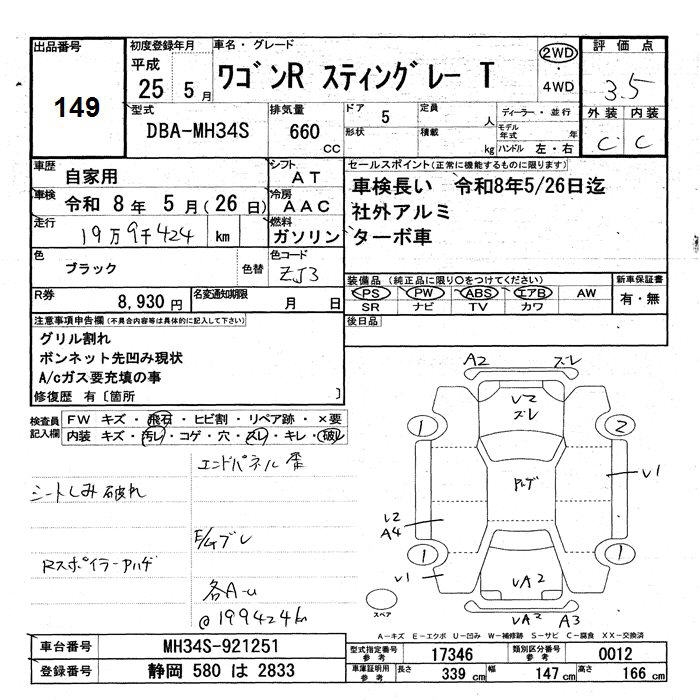 出品番号
149
初度登録年月
平成
25 5月
車名・グレード
ワゴンR スティングレー T
2WD
・
4WD
評価点
3.5
外装 内装
C C
型式
DBA-MH34S
排気量
660 cc
ドア 5
形状
定員 人
積載 kg
ディーラー・並行
モデル年式 年
ハンドル 左・右
車歴
自家用
シフト
AT
車検
令和 8年 5月(26日)
冷房
AAC
走行
19万9千424 km
燃料
ガソリン
色
ブラック
色替
色コード
ZJ3
R券
8,930円
名変通知期限
月 日
セールスポイント(正常に機能するものに限ります)
車検長い 令和8年5/26日迄
社外アルミ
ターボ車
装備品(純正品に限り○をつけてください)
PS PW ABS エアB AW
SR ナビ TV カワ
新車保証書
有・無
後日品
注意事項申告欄(不具合内容等は具体的に記入して下さい)
グリル割れ
ボンネット先凹み現状
A/cガス要充填の事
修復歴 有〔箇所 〕
検査員記入欄
FW キズ・飛石・ヒビ割・リペア跡・×要
内装 キズ・汚レ・コゲ・穴・スレ・キレ・破レ
エンドパネル
シートしみ破れ
E/Gブレ
Rスポイラー
各A-U
@199424km
A2 ズレ
V2
ズレ
1 2
V1
V2
A4
1 1
V1
VA2
VA2 A3
スペア
A-キズ E-エクボ U-凹み W-補修跡 S-サビ C-腐食 XX-交換済
車台番号
MH34S-921251
登録番号
静岡 580 は 2833
型式指定番号 参考
17346
類別区分番号 参考
0012
車庫証明用 参考
長さ 339 cm 幅 147 cm 高さ 166 cm